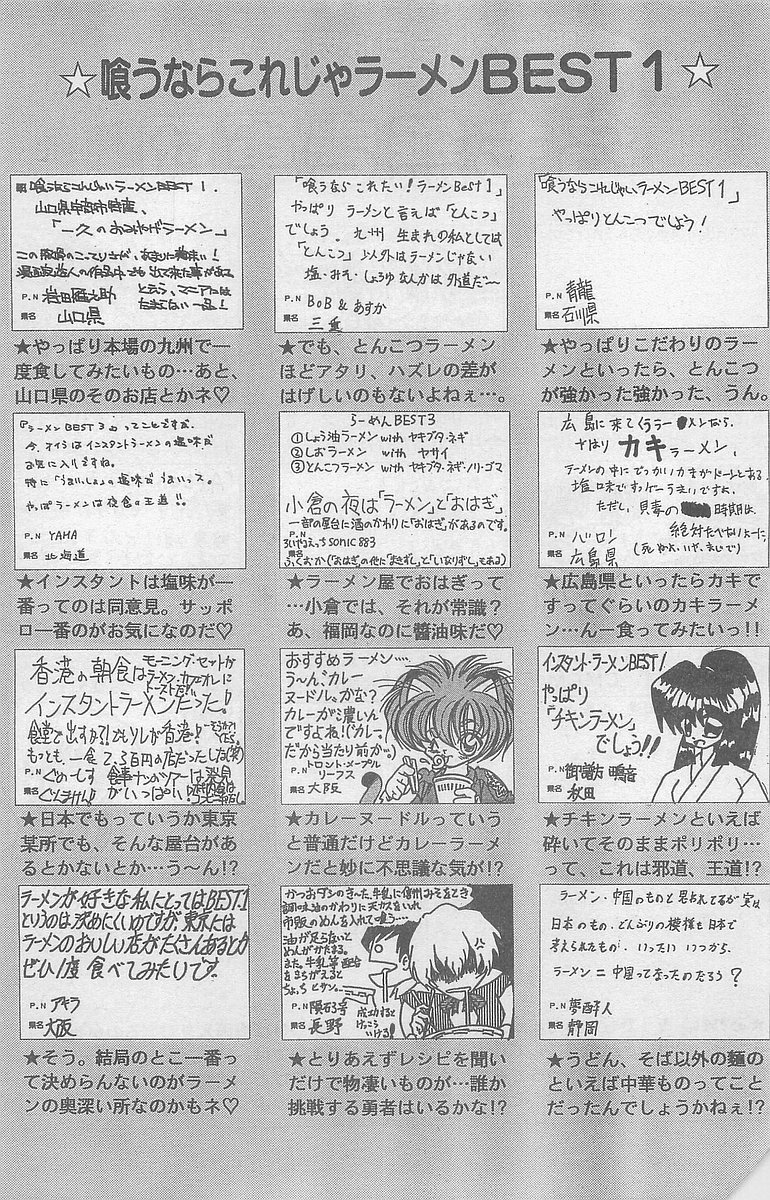 ☆喰うならこれじゃラーメンBEST1☆
喰うならこんじゃいラーメンBEST1.
山口県宇部市特産、
「一久のおみやげラーメン」
この豚骨のこってりさが、あまりに美味い!
の作品中でも出て来た事がある
と云う、マニアには
たまらない一品!
P.N 岩田
県名 山口県
★やっぱり本場の九州で一
度食してみたいもの…あと、
山口県のそのお店とかネ♡
「喰うなら これたい!ラーメンBest1」
やっぱり ラーメンと言えば「とんこつ」
でしょう。九州 生まれの私としては
「とんこつ」以外はラーメンじゃない
塩・みそ・しょうゆなんかは外道だ〜
P.N BoB & あすか
県名 三重
★でも、とんこつラーメン
ほどアタリ、ハズレの差が
はげしいのもないよねぇ…。
「喰うならこれじゃい、ラーメンBEST1」
やっぱりとんこつでしょう!
P.N 青龍
県名 石川県
★やっぱりこだわりのラー
メンといったら、とんこつ
が強かった強かった、うん。
『ラーメンBEST3』ってことですが、
今、オイラはインスタントラーメンの塩味が
お気に入りですね。
特に「うまいっしょ」の塩味でうまいっス。
やっぱラーメンは夜食の王道!!
P.N YAHA
県名 北海道
★インスタントは塩味が一
番ってのは同意見。サッポ
ロ一番のがお気になのだ♡
らーめんBEST3
①しょう油ラーメン with ヤキブタ・ネギ
②しおラーメン with ヤサイ
③とんこつラーメン with ヤキブタ・ネギ・ノリ・ゴマ
小倉の夜は「ラーメン」と「おはぎ」
一部の屋台に酒のかわりに「おはぎ」があるのです。
P.N sonic 883
県名 ふくおか(「おはぎ」の他に「まきずし」と「いなりずし」もある)
★ラーメン屋でおはぎって
…小倉では、それが常識?
あ、福岡なのに醬油味だ♡
広島に来てくうラーメンなら、
やはり カキラーメン、
ラーメンの中にでっかいカキがドーンとある
塩味ですっげーうまいですよ。
ただし、貝毒の時期は
絶対たべないよーに。
P.N バロン
県名 広島県
★広島県といったらカキで
すってぐらいのカキラーメ
ン…ん一食ってみたいっ!!
香港の朝食は
モーニング・セットが
ラーメン・カフェオレに
トーストだ
インスタントラーメンだった!
食堂で出すか?!としりしが香港!
もっとも、一食
円の店だったしね(笑)
P.N ぐめーしす
県名 ぐんまけん!!
がいっぱい!
★日本でもっていうか東京
某所でも、そんな屋台があ
るとかないとか…う〜ん!?
おすすめラーメン…
う〜ん、カレー
ヌードル。かな?
カレーが濃いん
ですよね!(カレー
だから当たり前か。)
P.N トロント・メープル
リーフス
県名 大阪
★カレーヌードルっていう
と普通だけどカレーラーメ
ンだと妙に不思議な気が!?
インスタント・ラーメンBEST1
やっぱり
「チキンラーメン」
でしょう!!
P.N 御諏訪 鳴音
県名 秋田
★チキンラーメンといえば
砕いてそのままポリポリ…
って、これは邪道、王道!?
ラーメンが好きな私にとってはBEST.1
というのは決めにくいのですが、東京には
ラーメンのおいしい店がたくさんあるとか
ぜひ1度 食べてみたいです。
P.N アキラ
県名 大阪
★そう。結局のとこ一番っ
て決めらんないのがラーメ
ンの奥深い所なのかもネ♡
かつおダシのきいた牛乳に信州みそをとき
調味油のかわりに天カスをいれ
市販のめんを入れて喰う…
油が足らないと
めんがかたまる。
また、牛乳等配合
をまちがえると
ちょっちヒサン…
P.N 隕石3号
県名 長野
成功すると
けっこう
いける!
★とりあえずレシピを聞い
だけで物凄いものが…誰か
挑戦する勇者はいるかな!?
ラーメン・中国のものと思われてるが実は
日本のもの、どんぶりの模様も日本で
考えられたもの。いったい いつから、
ラーメン=中国ってなったのだろう?
P.N 夢酔人
県名 静岡
★うどん、そば以外の麺の
といえば中華ものってこと
だったんでしょうかねぇ!?